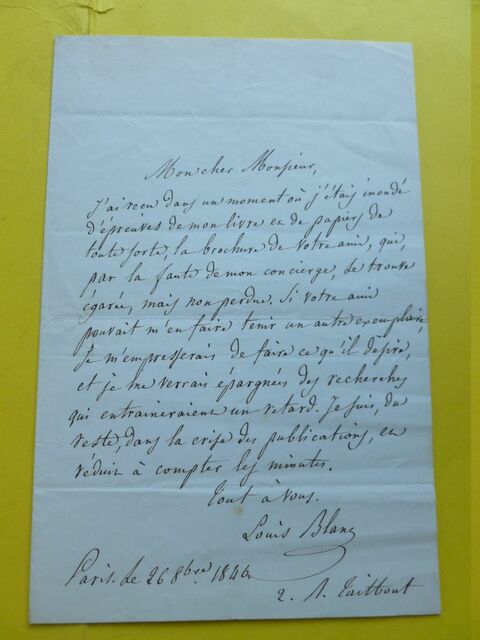 Mon cher Monsieur,
J'ai reçu dans un moment où j'étais inondé
d'épreuves de mon livre et de papiers de
toute sorte, la brochure de votre ami, qui,
par la faute de mon concierge, se trouve
égarée, mais non perdue. Si votre ami
pouvait m'en faire tenir un autre exemplaire,
je m'empresserais de faire ce qu'il désire,
et je me verrais épargnés des recherches
qui entraineraient un retard. Je suis, du
reste, dans la crise des publications, en
réduit à compter les minutes.
Tout à vous.
Louis Blanc
Paris. le 26 8bre 1846
2. r. Taitbout